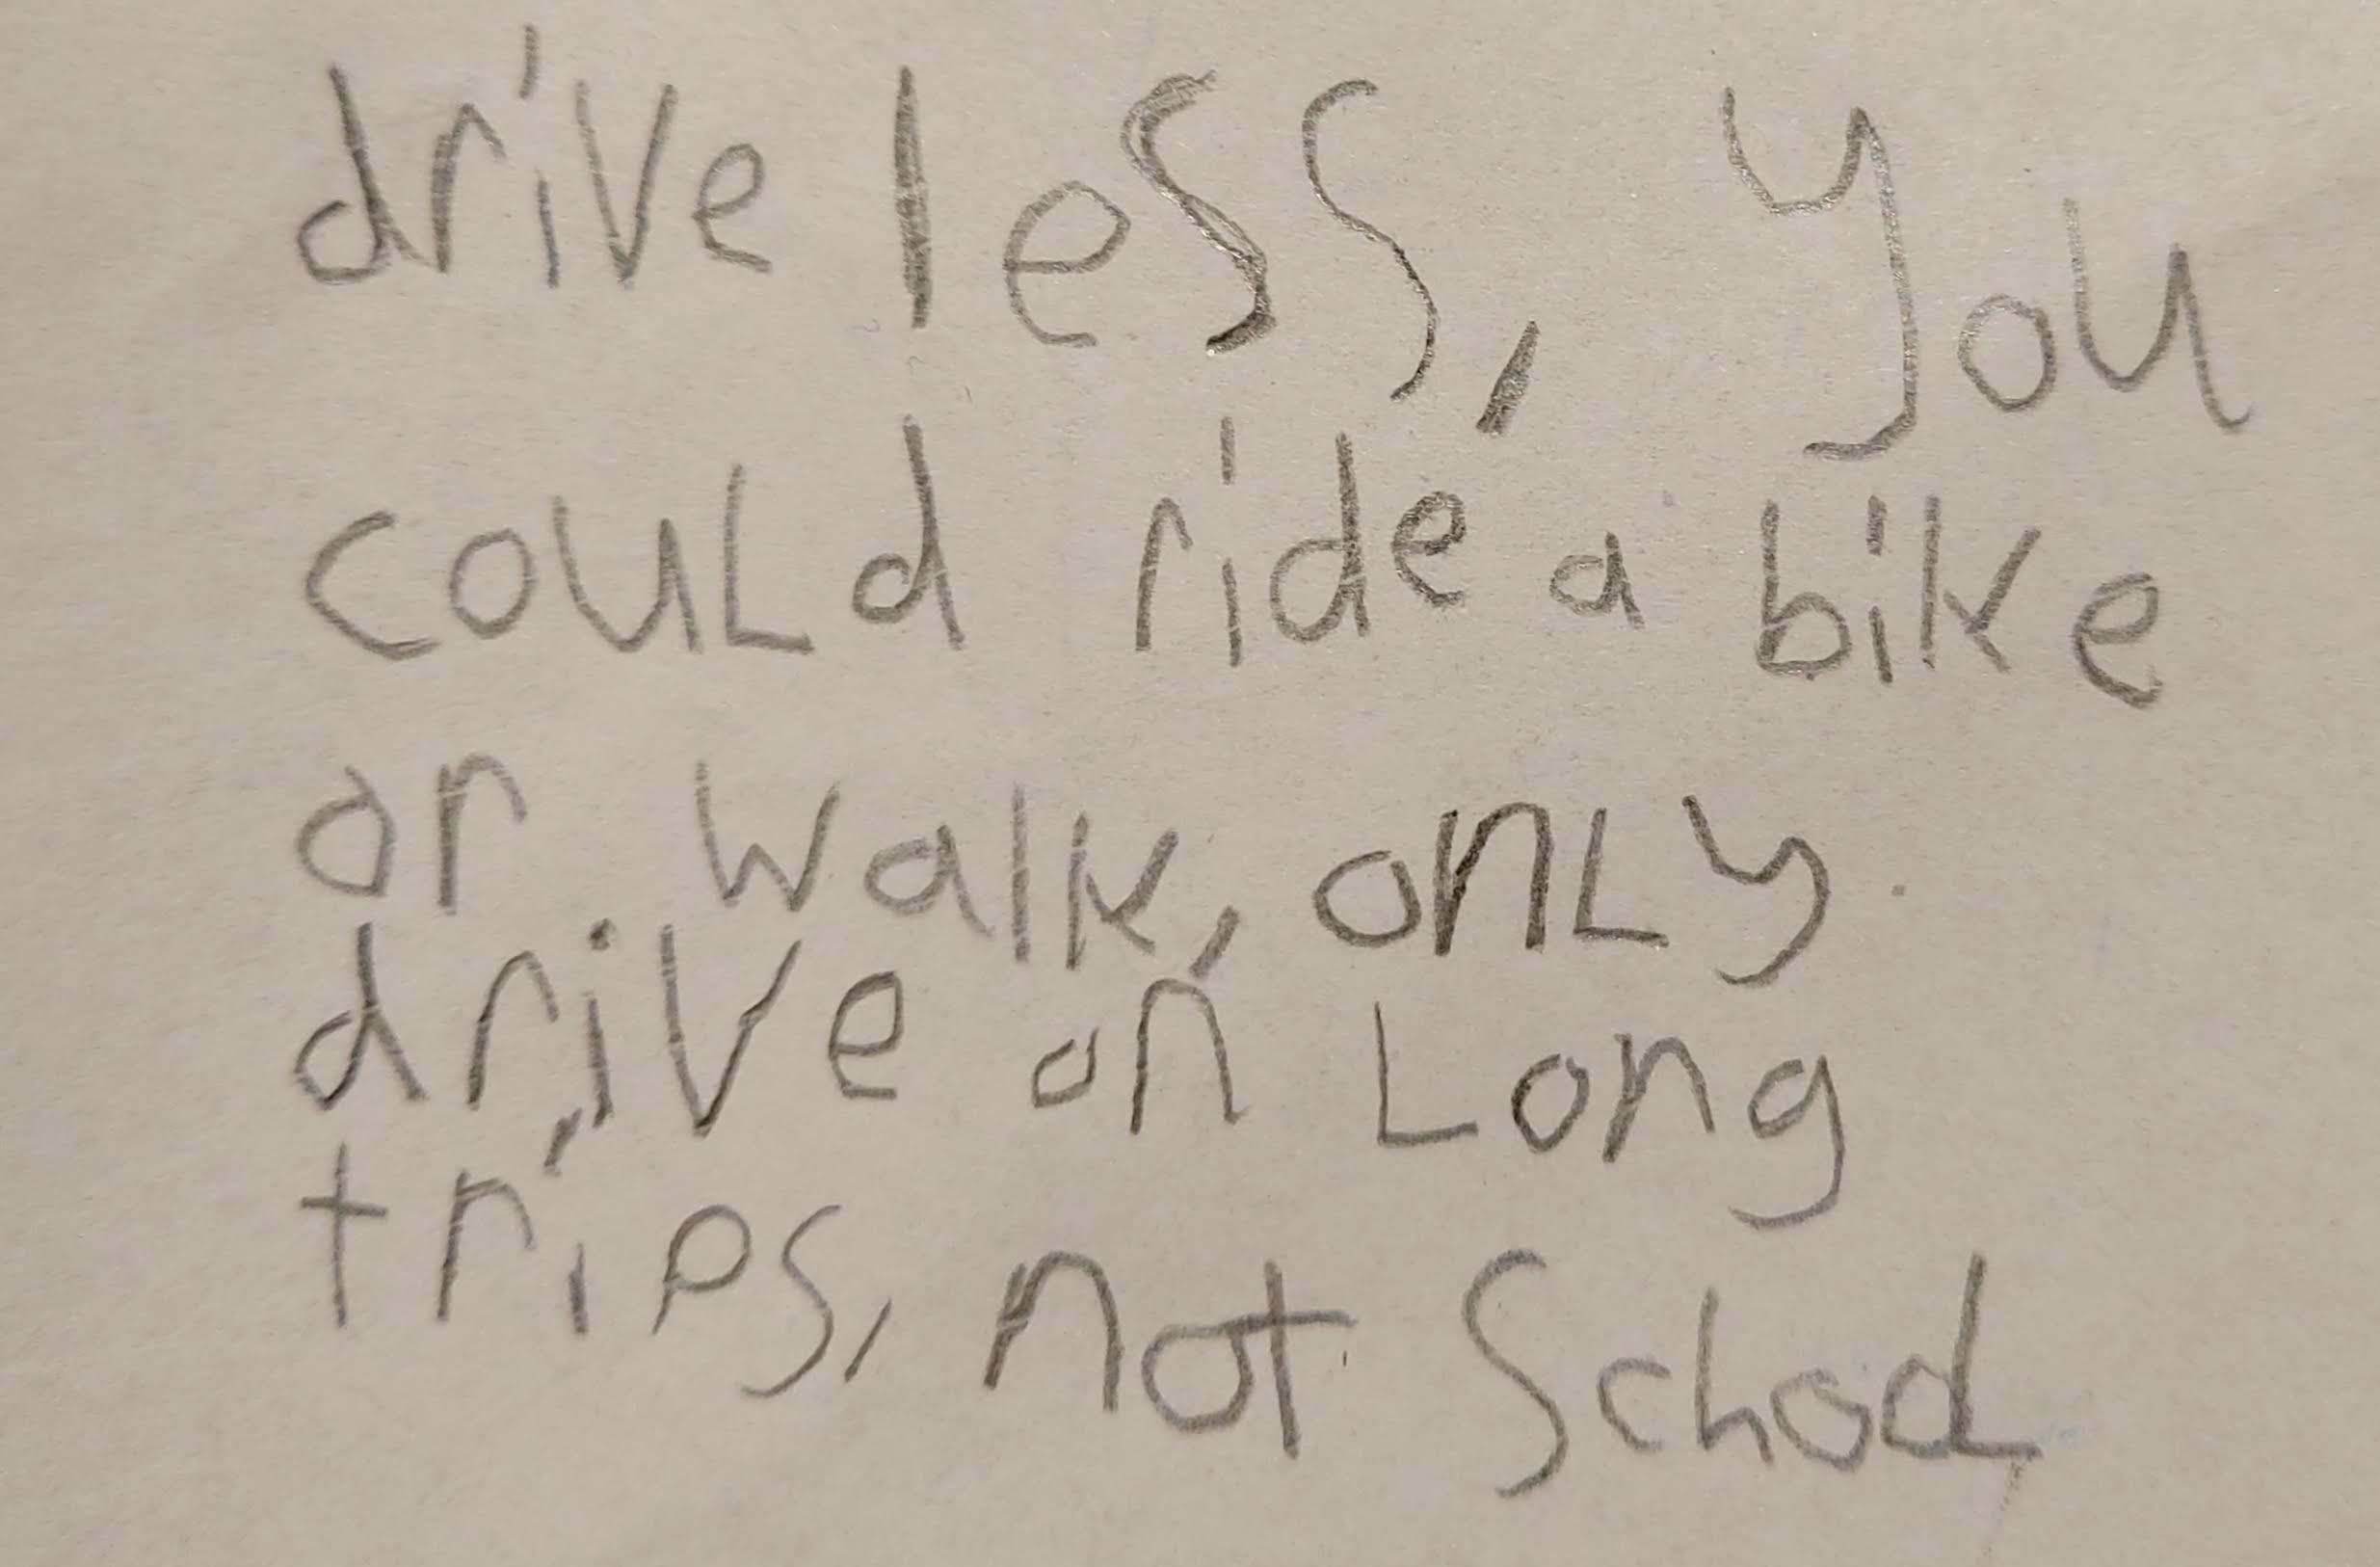 drive less, you
could ride a bike
or walk, onLy
drive on Long
trips, not School,